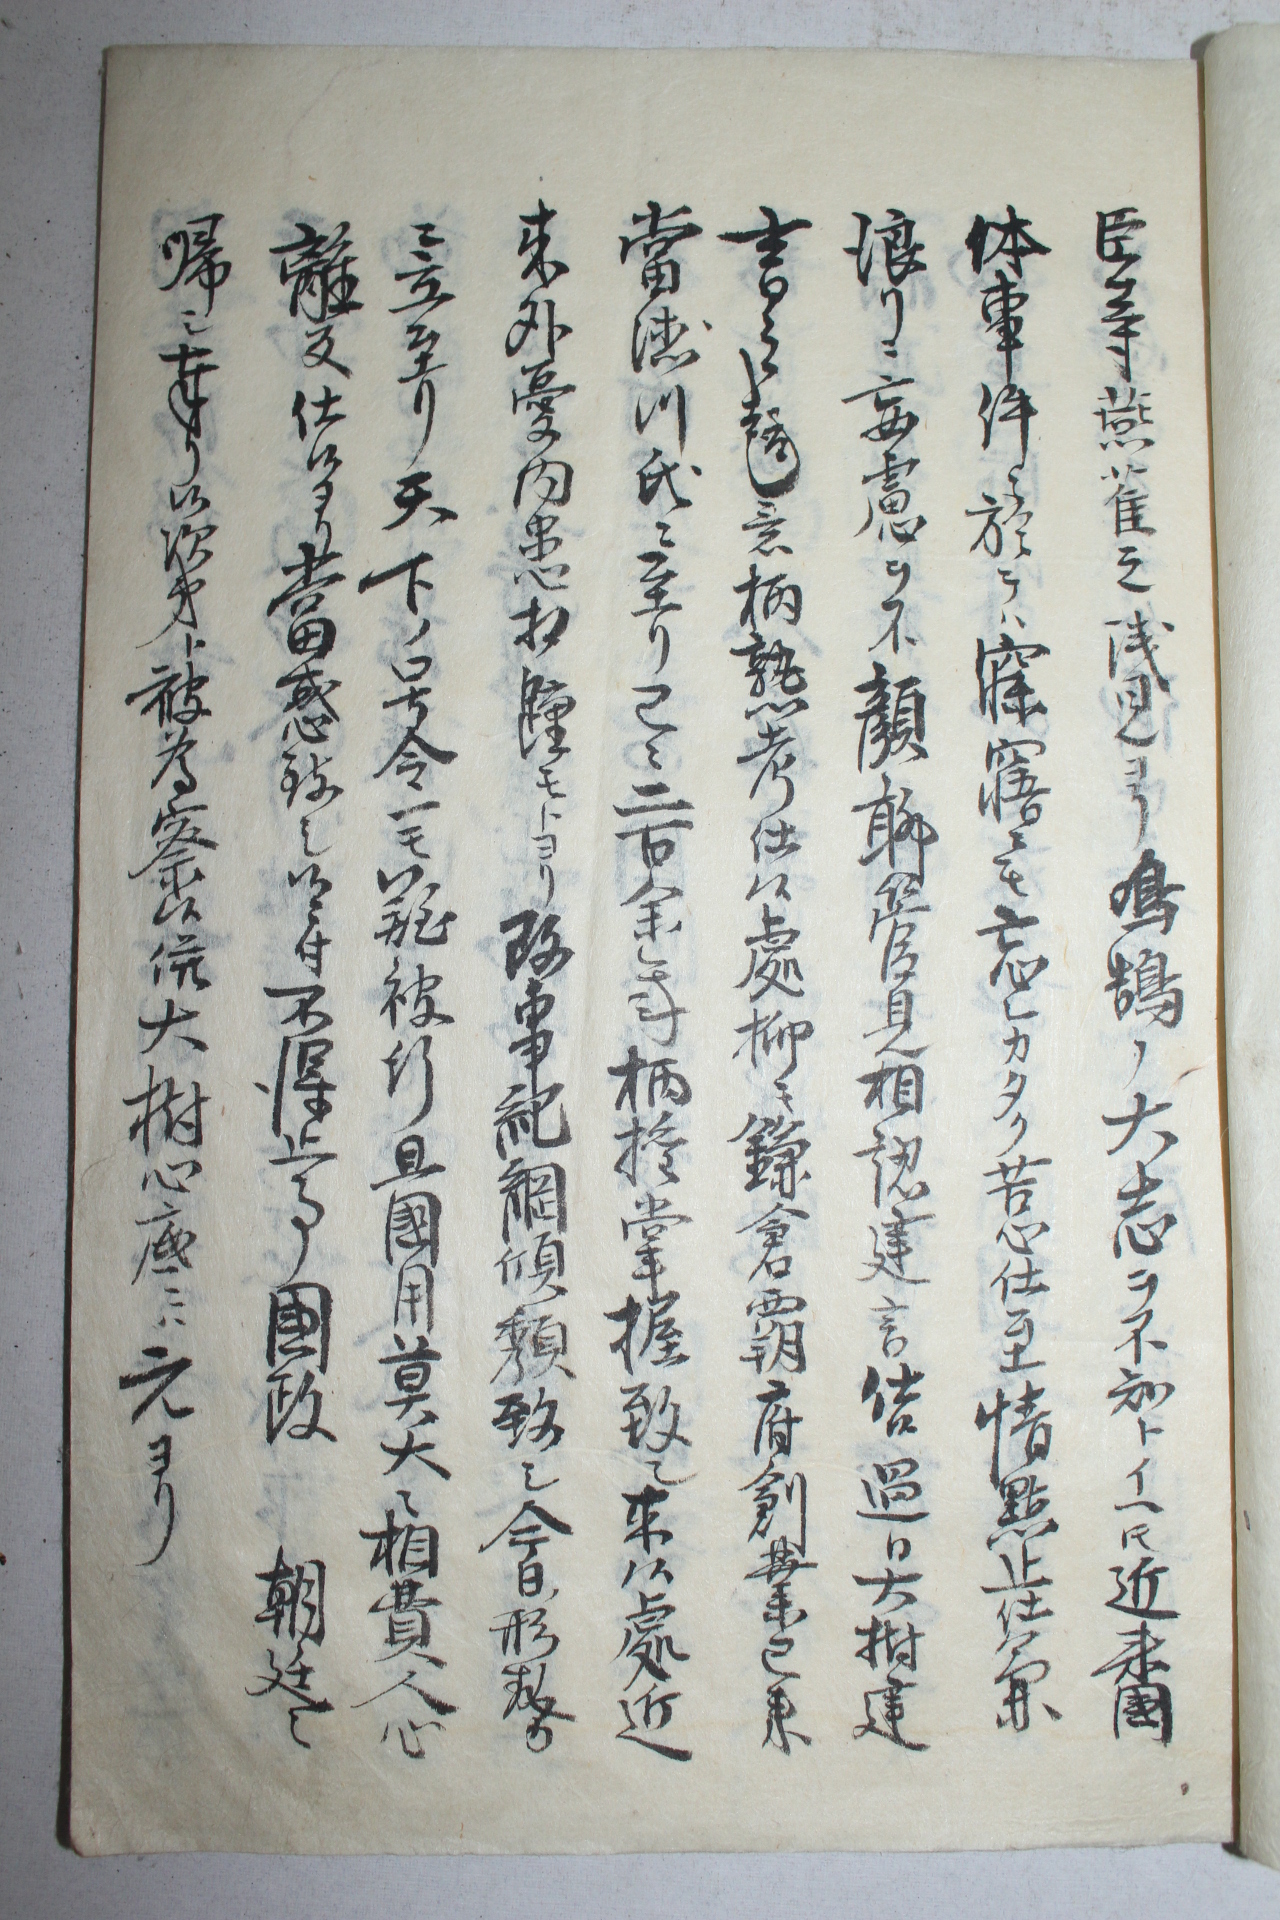 臣等燕雀之浅見ヨリ鳥鵠ノ大志ヲ不知トイヘ𪜈近来國
体事件ニ於テハ寐寤ニモ忘レカタク苦心仕至情黙止仕兼
浪リニ妄慮ヲ不顧聊管見相認建言仕過日大樹建
言之意柄熟考仕候處抑モ鎌倉覇府創業已来
當徳川氏ニ至リ已ニ二百余年柄権掌握致シ来候處近
来外憂内患相踵モトヨリ政事紀綱傾頽致シ今日ノ形勢
ニ立至リ天下ノ号令一モ難被行且國用莫大ニ相費人心
離反仕候ヨリ當惑致シ候ニ付不得止事國政 朝廷ニ
帰シ奉リ候次第ト被為察候従大樹心底ニハ元ヨリ